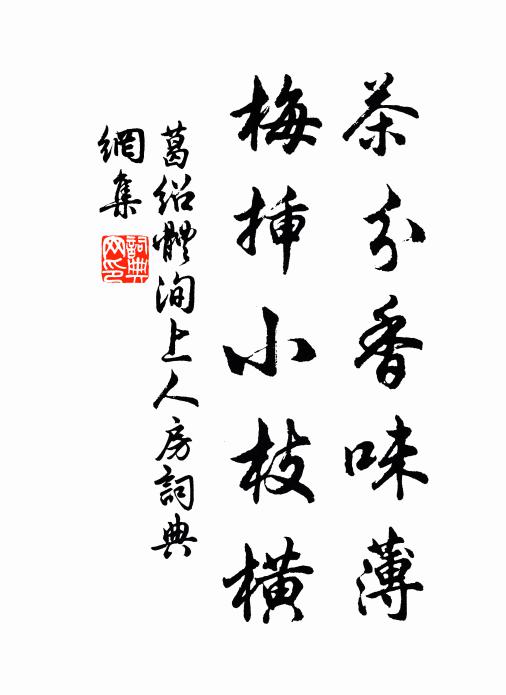 茶分香味薄
梅插小枝橫
葛紹體洵上人房詞典
網集
詞典
网印